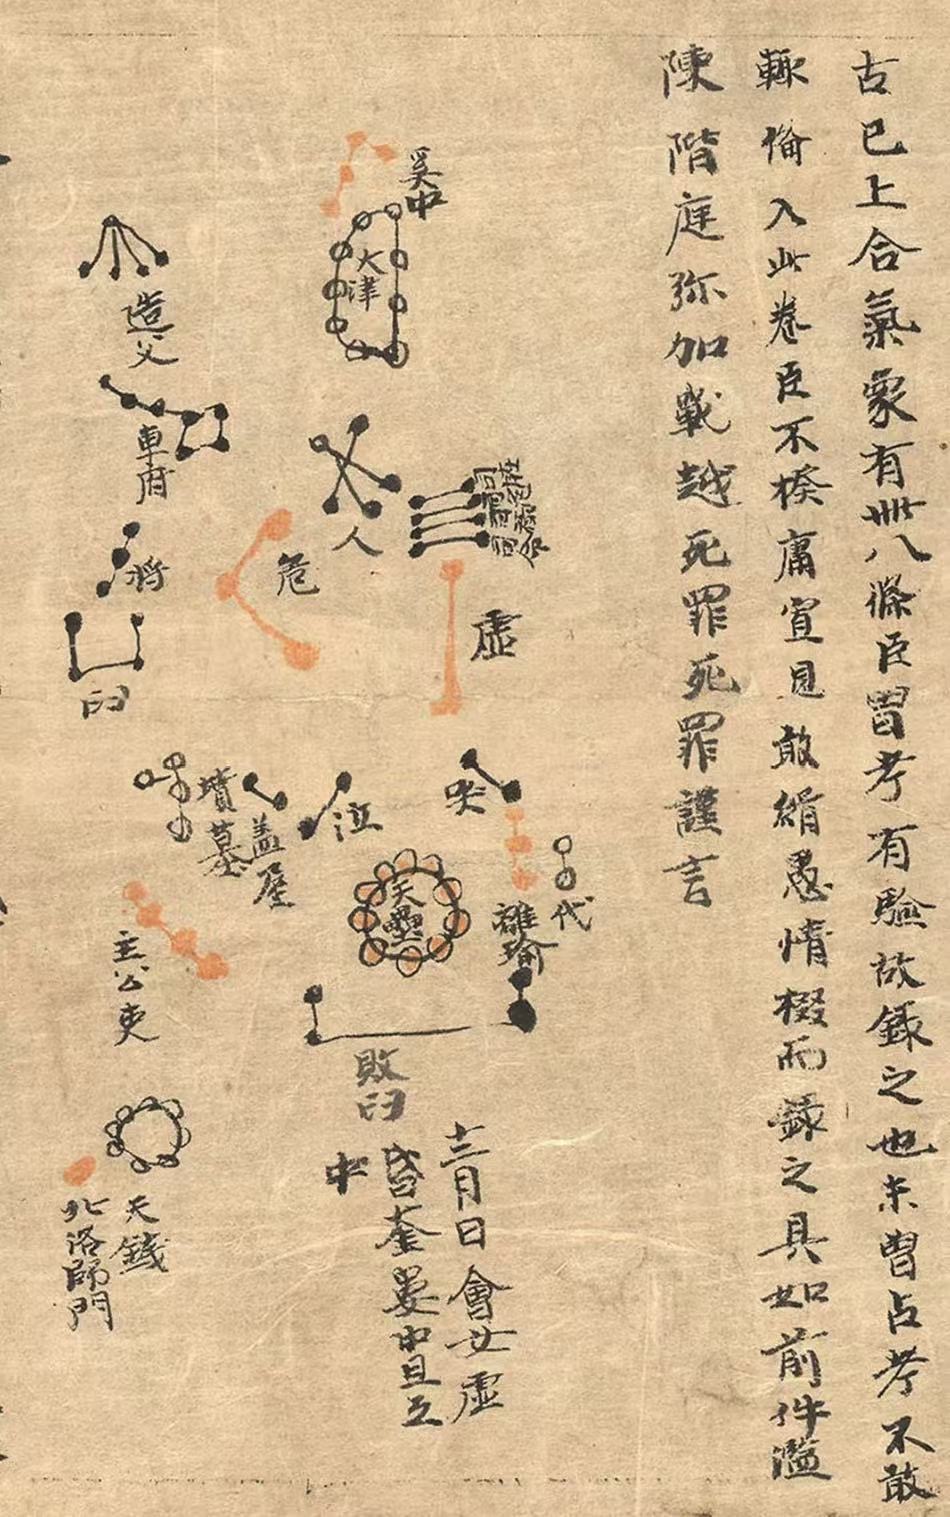 古已上合氣象有卌八條臣曾考有驗故錄之也未曾占考不敢
輒備入此卷臣不揆庸冥見敢緝愚情掇而錄之具如前件濫
陳階庭弥加戰越死罪死罪謹言
奚中
天津
造父
車府
人
司命
司祿
司危
司非
危
虛
將
臼
哭
泣
蓋屋
墳墓
代
離瑜
天壘
主公吏
敗臼
十二月日會女虛
昏奎婁中旦互
中
天錢
北洛師門